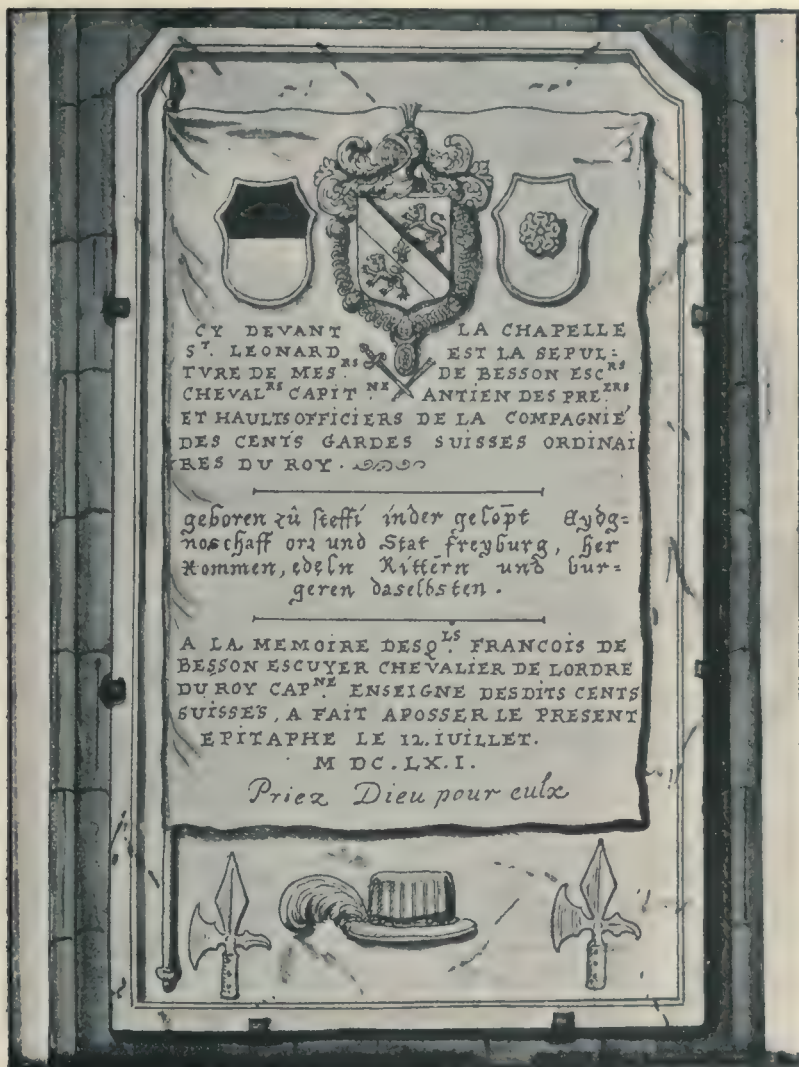 CY DEVANT LA CHAPELLE
S^T. LEONARD EST LA SEPUL=
TVRE DE MES^RS. DE BESSON ESC^RS
CHEVAL^RS CAPIT^NE. ANTIEN DES PRE^ERS.
ET HAULTS OFFICIERS DE LA COMPAGNIE
DES CENTS GARDES SUISSES ORDINAI
RES DU ROY.
geboren zů steffi inder gelopt Eydg=
noschafft orz und Stat freyburg, her
kommen, edeln Rittern und bur=
geren daselbsten.
A LA MEMOIRE DESQ^LS. FRANCOIS DE
BESSON ESCUYER CHEVALIER DE LORDRE
DU ROY CAP^NE. ENSEIGNE DESDITS CENTS
SUISSES, A FAIT APOSSER LE PRESENT
EPITAPHE LE 12. IUILLET.
M DC. LX. I.
Priez Dieu pour eulx